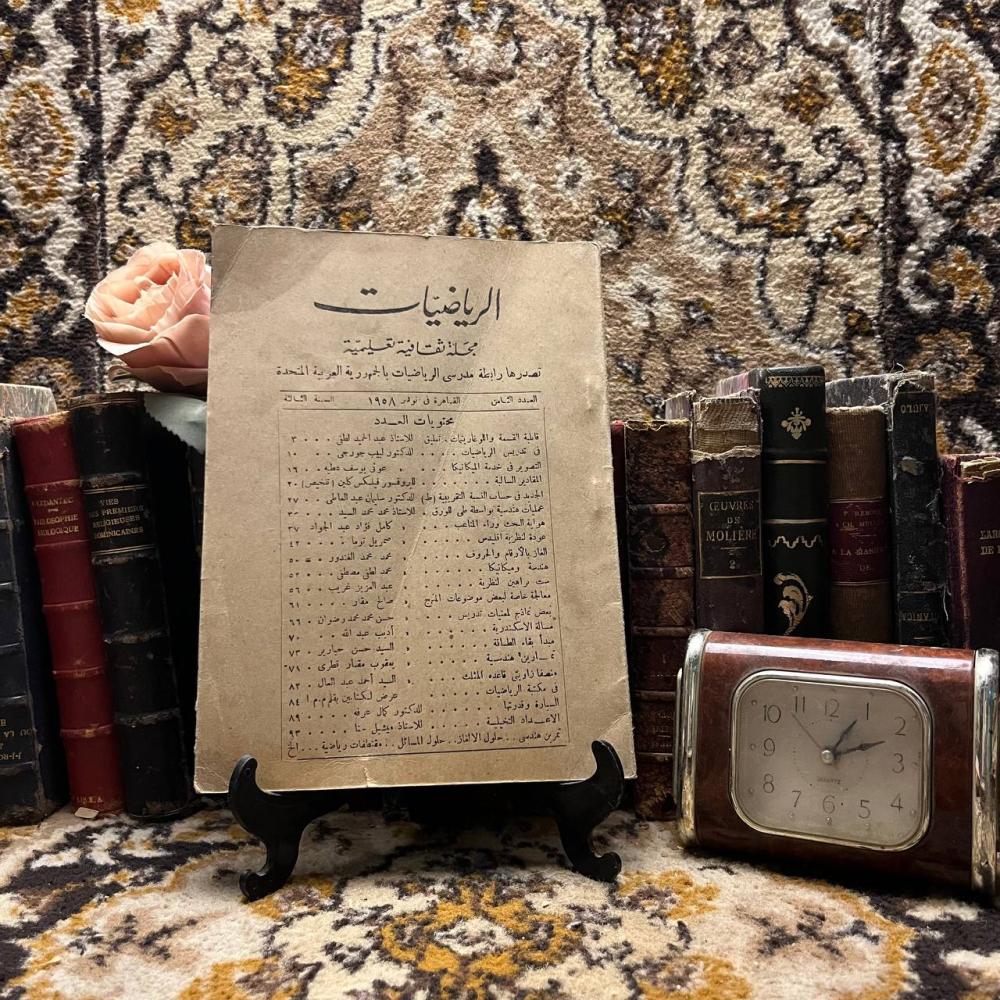 الرياضيات
مجلة ثقافية تعليمية
تصدرها رابطة مدرسي الرياضيات بالجمهورية العربية المتحدة
العدد الثامن القاهرة في نوفمبر ١٩٥٨ السنة الثالثة
محتويات العدد
قابلية القسمة واللوغاريتمات، تعليق للاستاذ عبد الحميد لطفي ٣
في تدريس الرياضيات للدكتور لبيب جورجي ١٠
التصوير في خدمة الميكانيكا عوني يوسف ١٦
المقادير السالبة للبروفسور فيلكس كلاين (تلخيص) ٢٠
الجديد في حساب النسبة التقريبية (ط) للدكتور سليمان عبد العاطي ٢٧
عمليات هندسية بواسطة طي الورق للاستاذ محمد محمد السيد
هواية البحث وراء المتاعب كامل فؤاد عبد الجواد ٣٧
عودة لنظرية اقليدس توما ٤٢
الغاز بالأرقام والحروف محمد محمد الغندور ٥٠
هندسة وميكانيكا محمد لطفي مصطفى ٥٢
ست براهين لنظرية عبد العزيز غريب ٥٦
معالجة خاصة لبعض موضوعات المنهج صالح مقار ٦١
بعض نماذج لمعينات تدريس حسن محمد محمد رضوان ٦٦
مسألة الاسكندرية أديب عبد الله ٧٠
مبدأ بقاء الطاقة السيد حسن ٧٣
تمارين هندسية يعقوب مقار ٧٨
منصفا زاويتي قاعدة المثلث السيد أحمد عبد العال ٨٣
في مكتبة الرياضيات عرض لكتابين بقلم م.م.ا ٨٤
السيارة وقدرتها للدكتور كمال عرفه ٨٩
الاعداد التخيلية للاستاذ ميشيل ٩٣
تمرين هندسي .. حلول الالغاز .. حلول المسائل .. مقتطفات رياضية ... الخ
PHILOSOPHIE
BIOLOGIQUE
VIES
DES PREMIERS
RELIGIEUSES
DOMINICAINES
ŒUVRES
DE
MOLIÈRE
2
11 12 1
10 2
9 3
8 4
7 6 5
QUARTZ